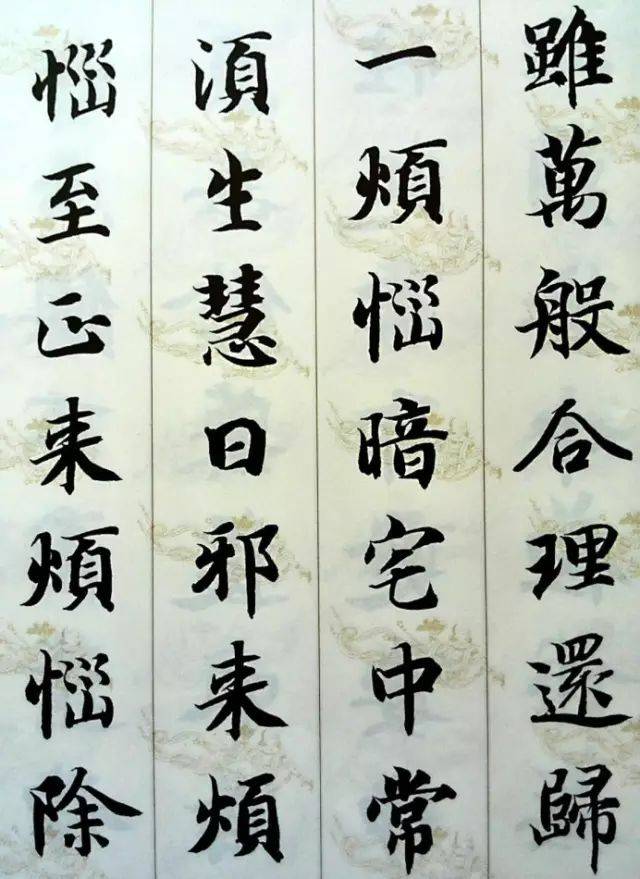 雖萬般合理還歸
一煩惱暗宅中常
湏生慧日邪来煩
惱至正来煩惱除